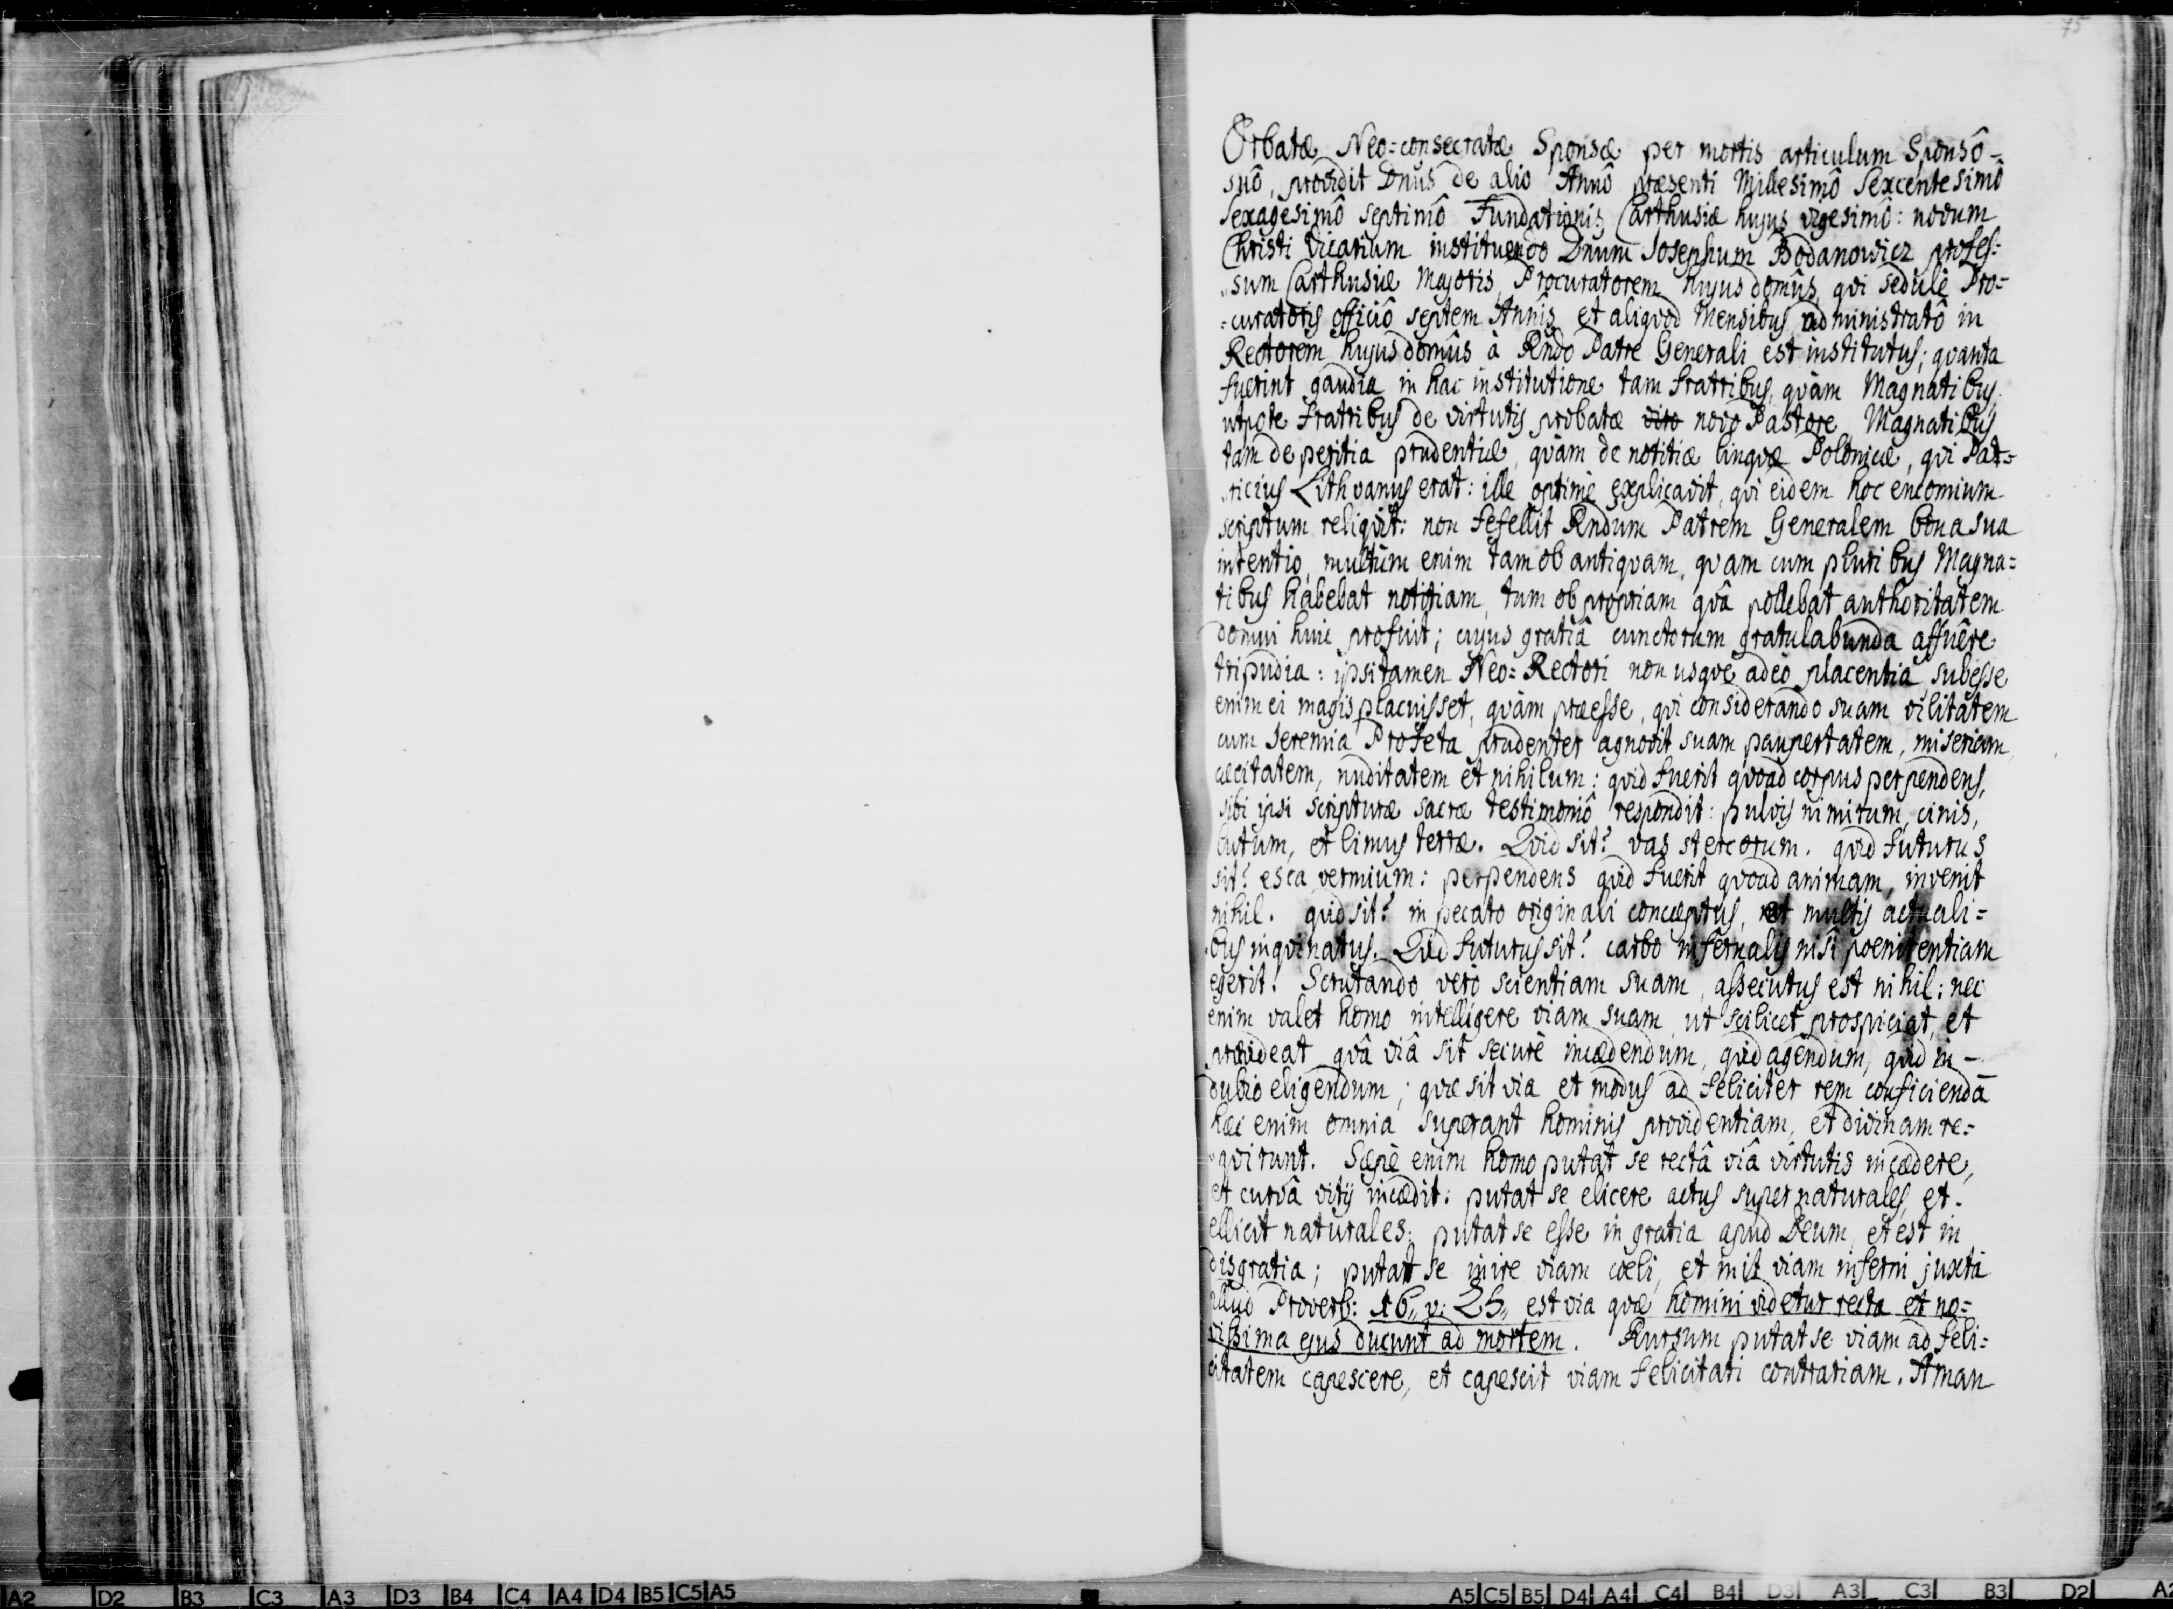 75
Orbatæ Neo=consecratæ Sponsæ per mortis articulum Sponsô=
suô, providit Dnus de alio Annô præsenti Millesimô Sexcentesimô
Sexagesimô septimô Fundationis Carthusiæ hujus vigesimô: novum
Christi Vicarium instituendo Dnum Josephum Bodanowicz profes=
=sum Carthusiæ Majoris, Procuratorem hujus domûs, qui sedulè Pro=
=curatoris officiô septem Annis et aliqvod Mensibus administratô in
Rectorem hujus domûs à Rndo Patre Generali est institutus; qvanta
fuerint gaudia in hac institutione tam fratribus, qvàm Magnatibus,
utpote Fratribus de virtutis probatæ viro novo Pastore, Magnatibus
tam de peritia prudentiæ, qvàm de notitiæ lingvæ Polonicæ, qvi Pat=
=ricius Lithvanus erat: ille optimè explicavit, qvi eidem hoc encomium
scriptum reliqvit: non fefellit Rndum Patrem Generalem bona sua
intentio, multùm enim tam ob antiqvam, qvam cum pluribus Magna=
tibus habebat notitiam, tum ob propriam qvâ pollebat authoritatem
domui huic profuit; cujus gratiâ cunctorum gratulabunda affuêre
tripudia: ipsi tamen Neo=Rectori non usqve adeò placentia, subesse
enim ei magis placuisset, qvàm præesse, qvi considerando suam vilitatem
cum Jeremia Profeta prudenter agnovit suam paupertatem, miseriam,
cæcitatem, nuditatem et nihilum: qvid fuerit qvoad corpus perpendens,
sibi ipsi scripturæ sacræ testimoniô respondit: pulvis nimirum, cinis,
lutum, et limus terræ. Qvid sit? vas stercorum. qvid futurus
sit? esca vermium: perpendens qvid fuerit qvoad animam, invenit
nihil. qvid sit? in pecato originali concæptus, et multis actuali=
bus inqvinatus. Qvid futurus sit? carbo infernalis nisi poenitentiam
egerit! Scrutando verò scientiam suam, assecutus est nihil: nec
enim valet homo intelligere viam suam, ut scilicet prospiciat, et
prævideat qvâ viâ sit securè incædendum, qvid agendum, qvid in=
dubio eligendum; qvæ sit via et modus ad feliciter rem conficiendã
hæc enim omnia superant hominis providentiam, et divinam re=
=qvirunt. Sæpè enim homo putat se rectâ viâ virtutis incædere,
et curvâ vitij incædit: putat se elicere actus supernaturales, et
ellicit naturales: putat se esse in gratia apud Deum, et est in
disgratia; putat se inire viam coeli, et init viam inferni juxta
illud Proverb: 16,, v: 25,, est via qvæ homini videtur recta et no=
vissima ejus ducunt ad mortem. Rursum putat se viam ad feli=
citatem capescere, et capescit viam felicitati contrariam. Aman